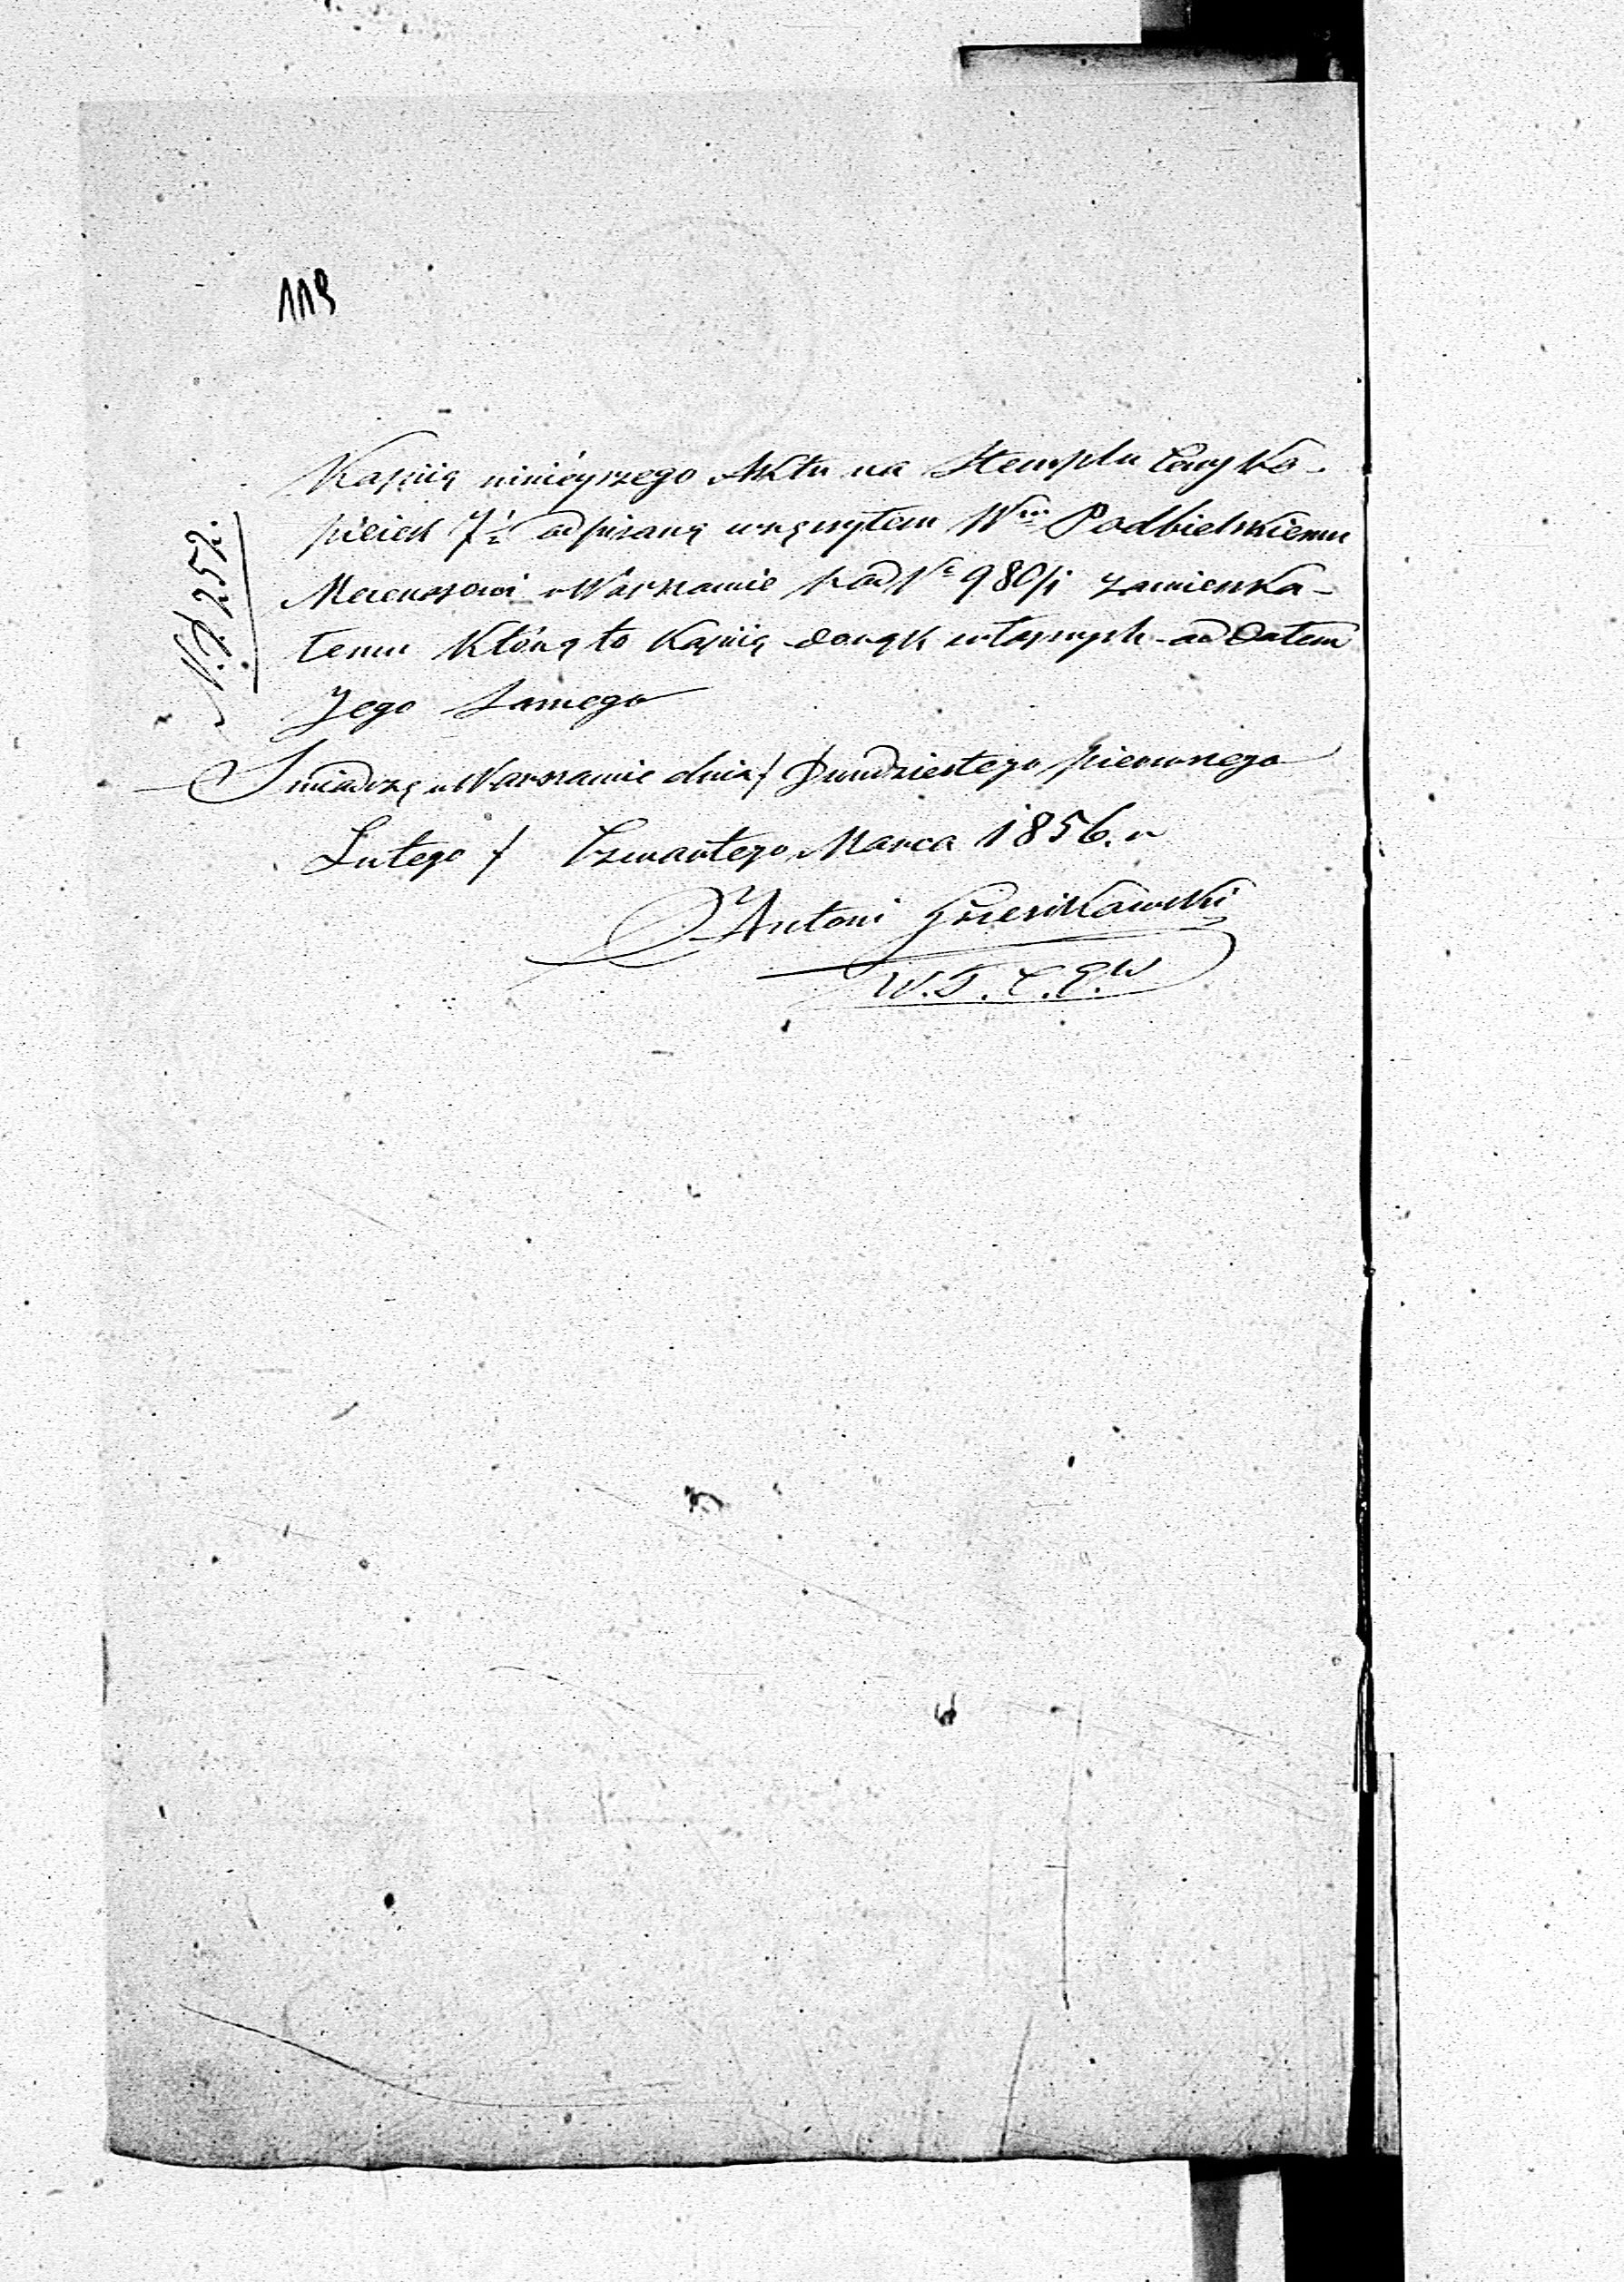 113
Kopiią ninieyszego Aktu na Stemplu Ceny Ko-
pieiek 7½ odpisaną wręczyłem Wmu Podbielskiemu
Mecenasowi w Warszawie pod Nr 980/1 zamieszka-
łemu którą to Kopiią do rąk własnych oddałem
Jego Samego
Świadczę w Warszawie dnia / Dwudziestego pierwszego
Lutego / Czwartego Marca 1856. r
Antoni
W.T.C.